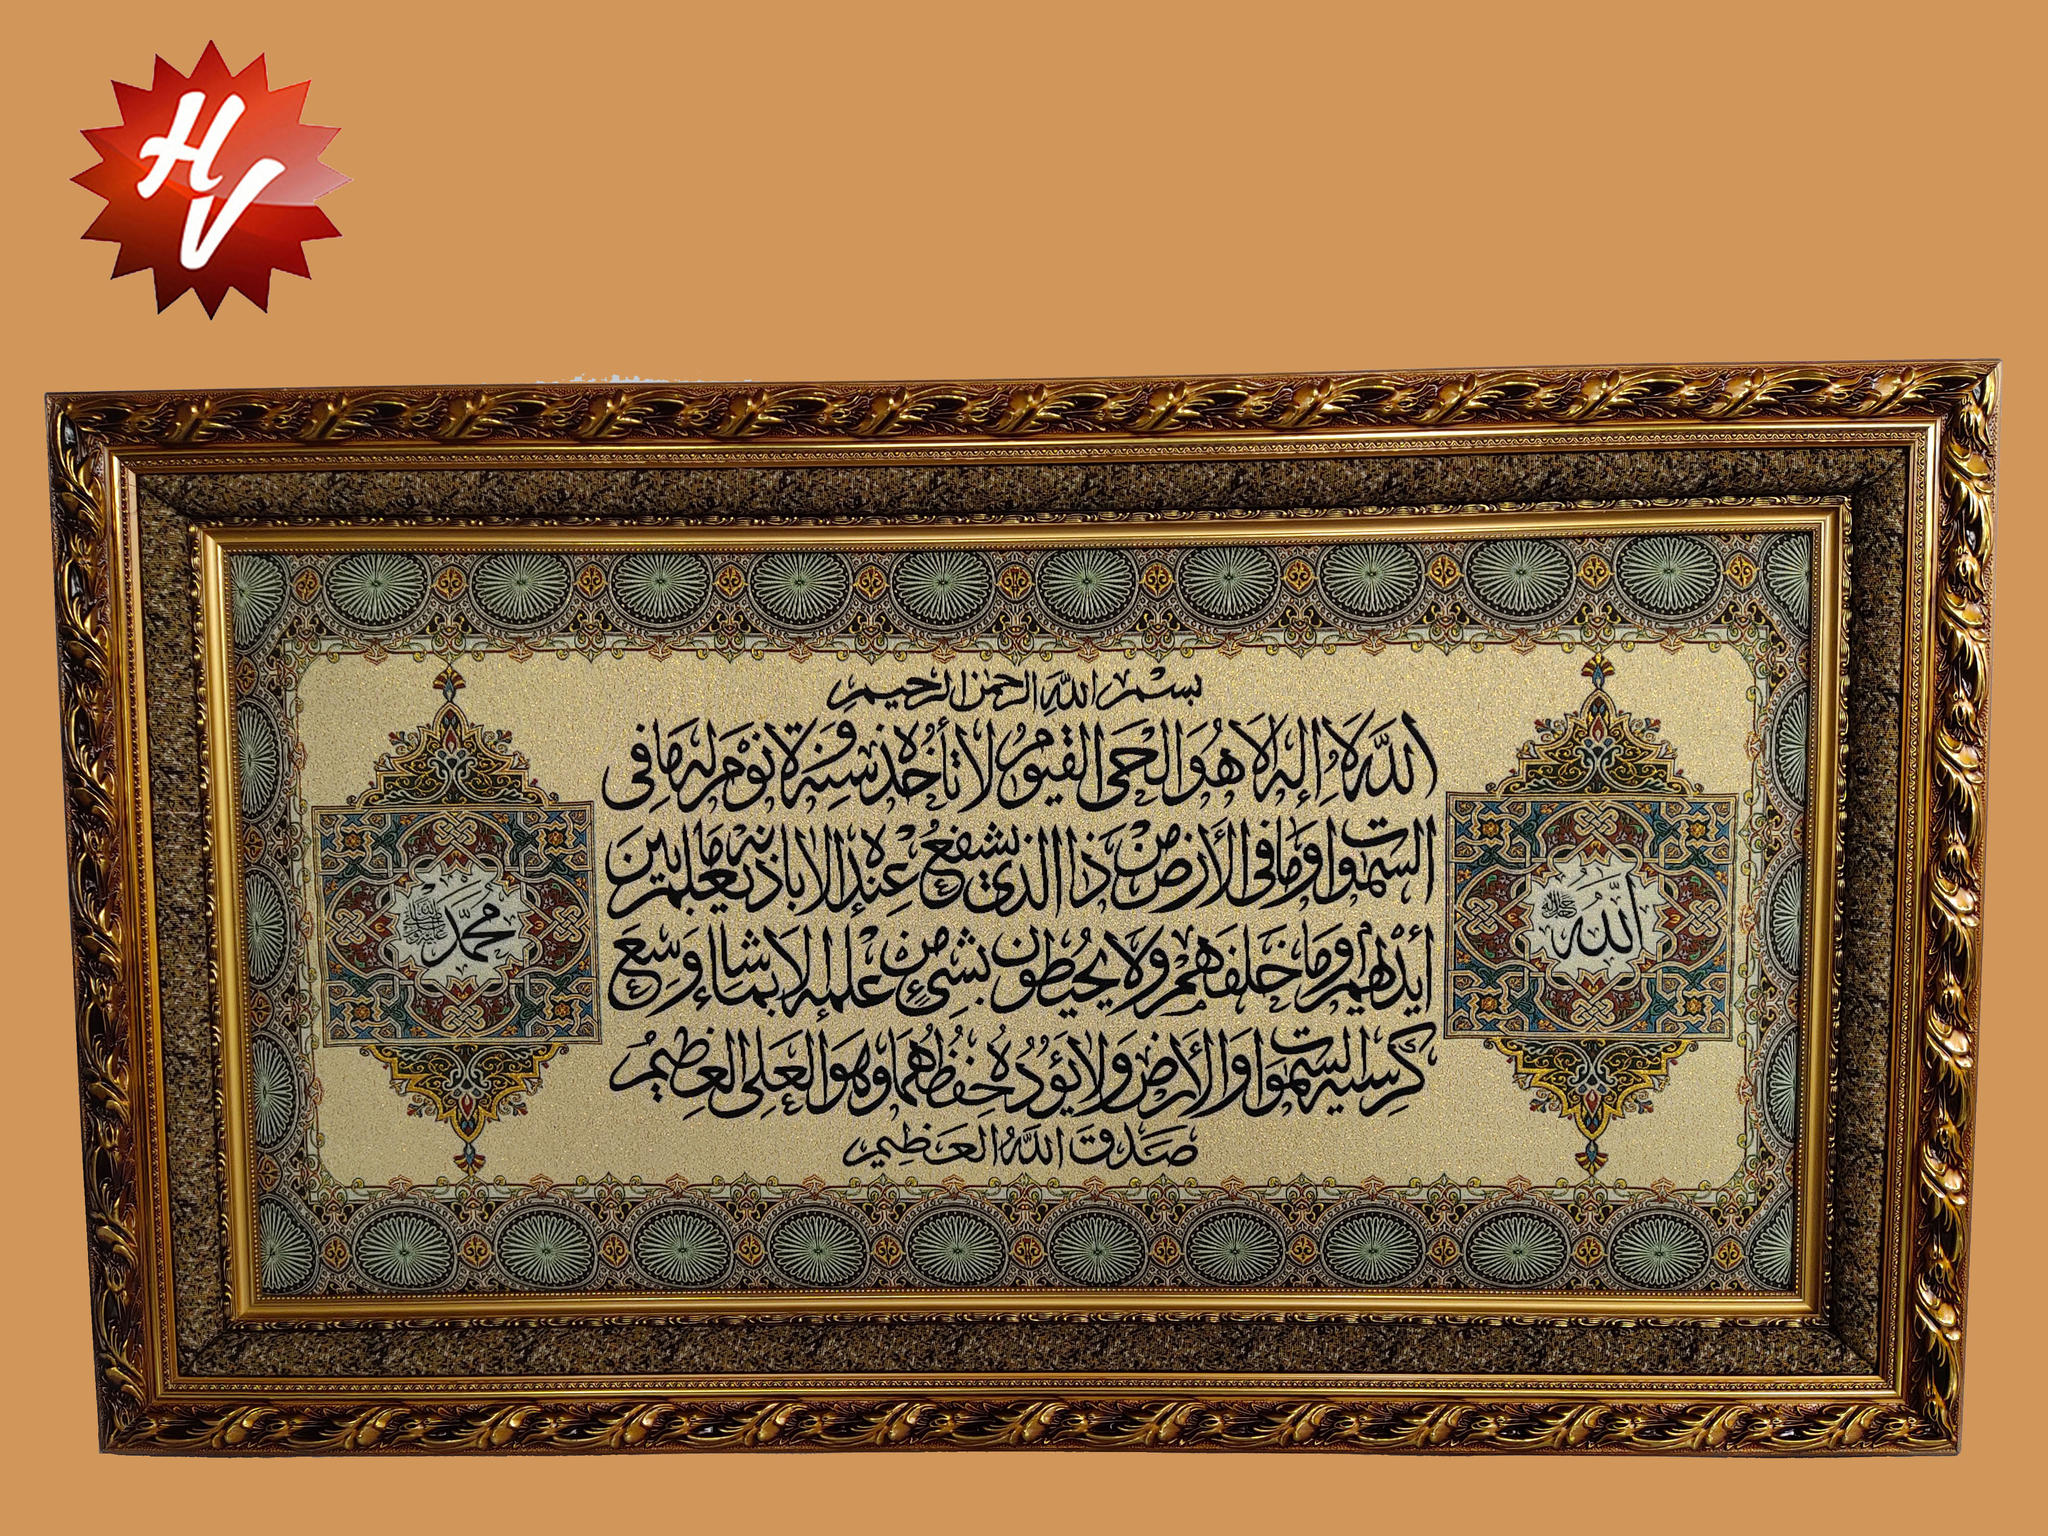 HV
بسم الله الرحمن الرحيم
الله لا إله إلا هو الحي القيوم لا تأخذه سنة ولا نوم له ما في
السموات وما في الأرض من ذا الذي يشفع عنده إلا بإذنه يعلم ما بين
أيديهم وما خلفهم ولا يحيطون بشيء من علمه إلا بما شاء وسع
كرسيه السموات والأرض ولا يؤده حفظهما وهو العلي العظيم
صدق الله العظيم
الله جل جلاله
محمد صلى الله عليه وسلم